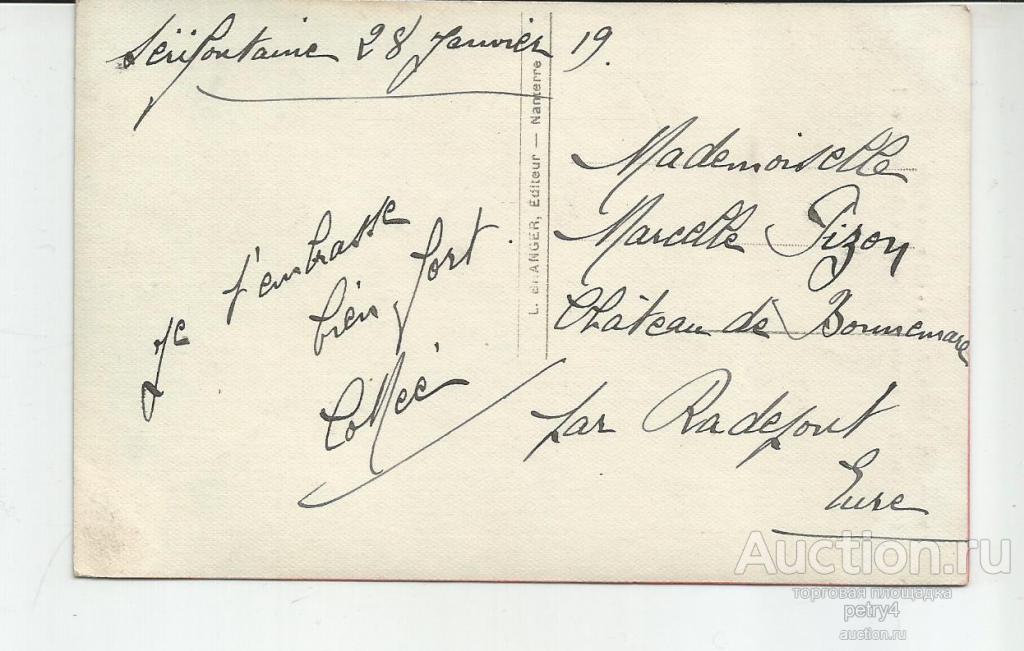 Sérifontaine 28 Janvier 19.
Je t'embrasse
bien fort
L. BRANGER, Éditeur — Nanterre
Mademoiselle
Marcelle Pizon
Château de Bonnemare
par Radepont
Eure
Auction.ru
торговая площадка
petry4
auction.ru